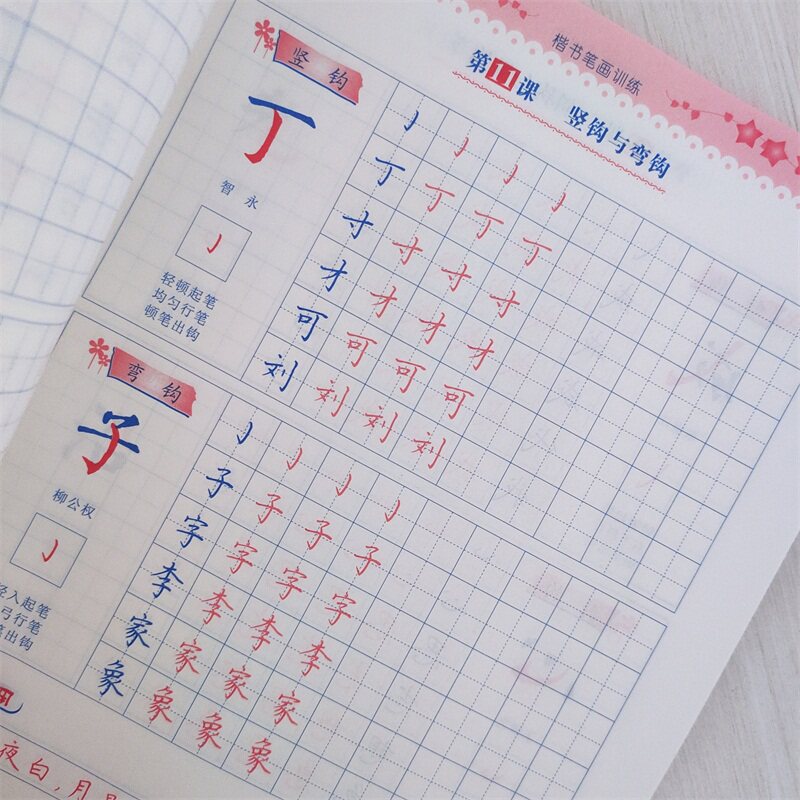 楷书笔画训练
第11课 竖钩与弯钩
竖钩
丁
智永
亅
轻顿起笔
均匀行笔
顿笔出钩
亅亅亅亅
丁丁丁丁
寸寸寸寸
才才才才
可可可可
刘刘刘刘
弯钩
子
柳公权
入起笔
弓行笔
笔出钩
子子子子
字字字字
李李李李
家家家家
象象象象
夜白,月